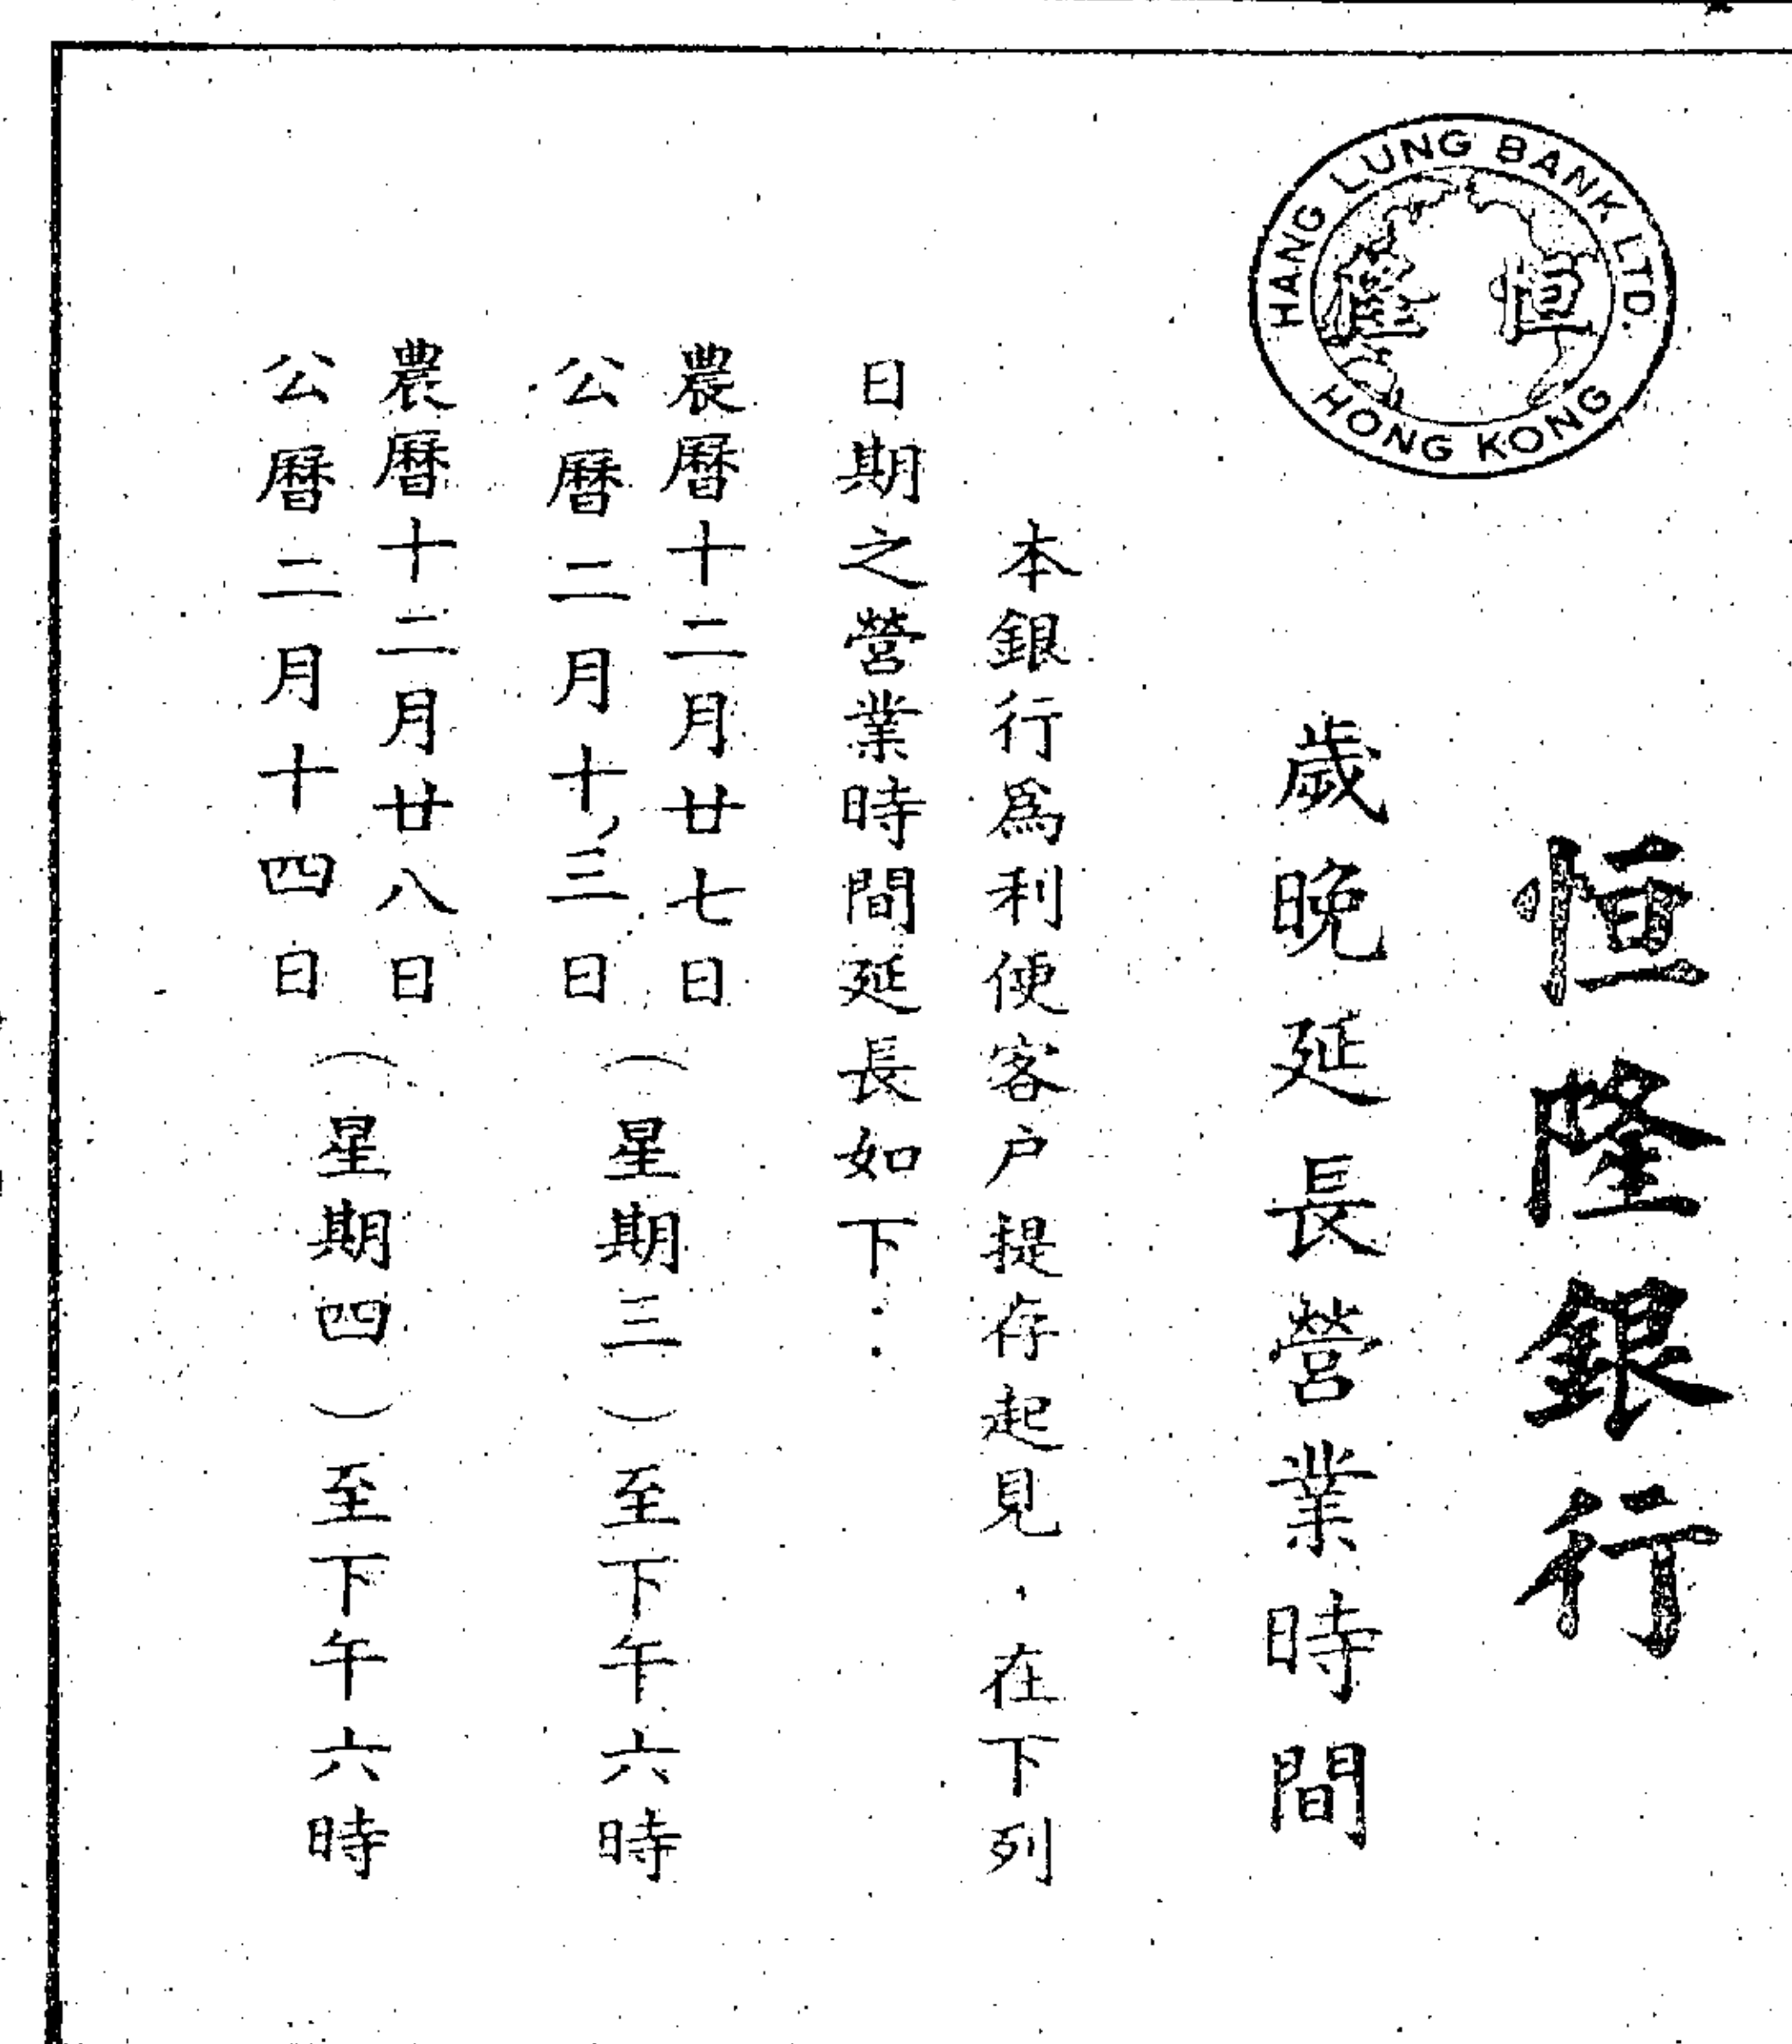 HANG LUNG BANK LTD.
恒隆
HONG KONG
恒隆銀行
歲晚延長營業時間
本銀行爲利便客户提存起見，在下列
日期之營業時間延長如下：
農曆十二月廿七日
公曆二月十三日
（星期三）至下午六時
農曆十二月廿八日
公曆二月十四日
（星期四）至下午六時